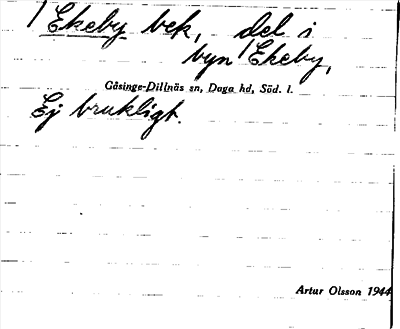 /Ekeby bek, del i
byn /Ekeby,
Gåsinge-Dillnäs sn, Daga hd, Söd. l.
Ej brukligt.
Artur Olsson 1944